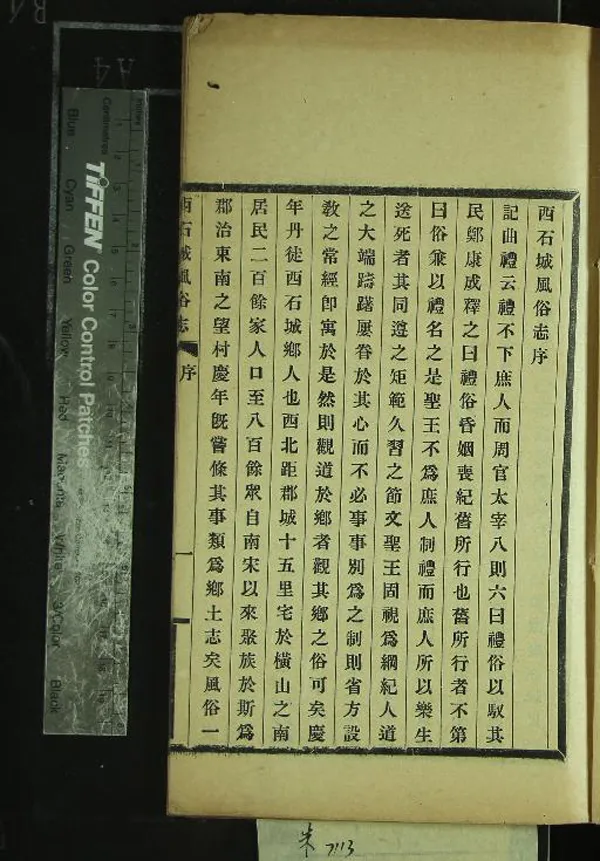 西石城風俗志序
記曲禮云禮不下庶人而周官太宰八則六曰禮俗以馭其
民鄭康成釋之曰禮俗昏姻喪紀舊所行也舊所行者不第
曰俗兼以禮名之是聖王不為庶人制禮而庶人所以樂生
送死者其同遵之矩範久習之節文聖王固視為綱紀人道
之大端躊躇屢眷於其心而不必事事別為之制則省方設
敎之常經卽寓於是然則觀道於鄉者觀其鄉之俗可矣慶
年丹徒西石城鄉人也西北距郡城十五里宅於橫山之南
居民二百餘家人口至八百餘眾自南宋以來聚族於斯為
郡治東南之望村慶年旣嘗條其事類為鄉土志矣風俗一
西石城風俗志 序 一
TIFFEN Color Control Patches
Centimetres
Inches
Blue
Cyan
Green
Yellow
Red
Magenta
White
3/Color
Black
朱 7113